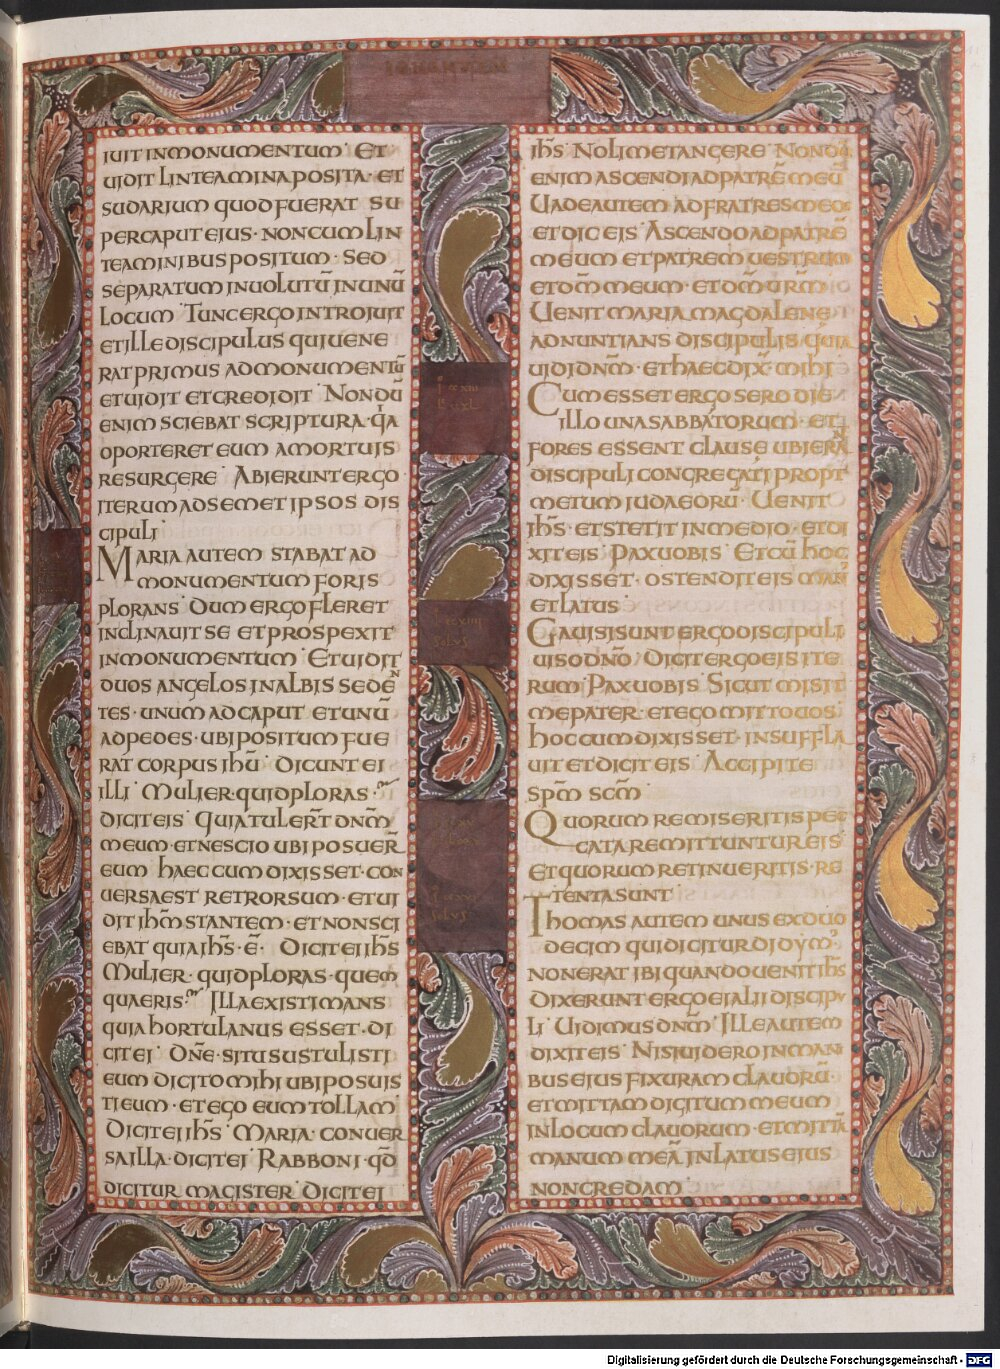 IUIT IN MONUMENTUM· ET
UIDIT LINTEAMINA POSITA· ET
SUDARIUM QUOD FUERAT SU
PER CAPUT EIUS· NON CUM LIN
TEAMINIBUS POSITUM· SED
SEPARATUM INUOLUTŪ IN UNŪ
LOCUM· TUNC ERGO INTROIUIT
ET ILLE DISCIPULUS QUI UENE
RAT PRIMUS AD MONUMENTŪ
ET UIDIT ET CREDIDIT· NONDŪ
ENIM SCIEBAT SCRIPTURA· QA
OPORTERET EUM A MORTUIS
RESURGERE· ABIERUNT ERGO
ITERUM AD SEMET IPSOS DIS
CIPULI·
MARIA AUTEM STABAT AD
MONUMENTUM FORIS
PLORANS· DUM ERGO FLERET
INCLINAUIT SE ET PROSPEXIT
IN MONUMENTUM· ET UIDIT
DUOS ANGELOS IN ALBIS SEDEN
TES· UNUM AD CAPUT ET UNŪ
AD PEDES· UBI POSITUM FUE
RAT CORPUS IHŪ· DICUNT EI
ILLI· MULIER QUID PLORAS·
DICIT EIS· QUIA TULERT̄ DNM̄
MEUM· ET NESCIO UBI POSUER̄
EUM· HAEC CUM DIXISSET· CON
UERSA EST RETRORSUM· ET UI
DIT IHM̄ STANTEM· ET NON SCI
EBAT QUIA IHS̄· Ē· DICIT EI IHS̄
MULIER· QUID PLORAS· QUEM
QUAERIS· ILLA EXISTIMANS
QUIA HORTULANUS ESSET· DI
CIT EI· DNĒ· SI TU SUSTULISTI
EUM DICITO MIHI UBI POSUIS
TI EUM· ET EGO EUM TOLLAM·
DICIT EI IHS̄· MARIA· CONUER
SA ILLA· DICIT EI· RABBONI· QD̄
DICITUR MAGISTER· DICIT EI
IHS̄· NOLI ME TANGERE· NONDŪ
ENIM ASCENDI AD PATRĒ MEŪ
UADE AUTEM AD FRATRES MEOS
ET DIC EIS· ASCENDO AD PATRĒ
MEUM ET PATREM UESTRUM
ET DM̄ MEUM· ET DM̄ URM̄·
UENIT MARIA MAGDALENE
ADNUNTIANS DISCIPULIS· QUIA
UIDI DNM̄· ET HAEC DIX· MIHI·
CUM ESSET ERGO SERO DIE
ILLO UNA SABBATORUM· ET
FORES ESSENT CLAUSE UBI ERAN
DISCIPULI CONGREGATI PROPT
METUM IUDAEORŪ· UENIT
IHS̄· ET STETIT IN MEDIO· ET DI
XIT EIS· PAX UOBIS· ET CŪ HOC
DIXISSET· OSTENDIT EIS MAN
ET LATUS·
GAUISI SUNT ERGO DISCIPULI
UISO DNŌ· DICIT ERGO EIS ITE
RUM· PAX UOBIS· SICUT MISIT
ME PATER· ET EGO MITTO UOS·
HOC CUM DIXISSET· INSUFFLA
UIT ET DICIT EIS· ACCIPITE
SPM̄ SCM̄·
QUORUM REMISERITIS PEC
CATA REMITTUNTUR EIS·
ET QUORUM RETINUERITIS· RE
TENTA SUNT·
THOMAS AUTEM UNUS EX DUO
DECIM QUI DICITUR DIDYM·
NON ERAT IBI QUANDO UENIT IHS̄
DIXERUNT ERGO EI ALII DISCIPU
LI· UIDIMUS DNM̄· ILLE AUTEM
DIXIT EIS· NISI UIDERO IN MANI
BUS EIUS FIXURAM CLAUORŪ·
ET MITTAM DIGITUM MEUM
IN LOCUM CLAUORUM· ET MITTĀ
MANUM MEĀ IN LATUS EIUS
NON CREDAM
Digitalisierung gefördert durch die Deutsche Forschungsgemeinschaft - DFG